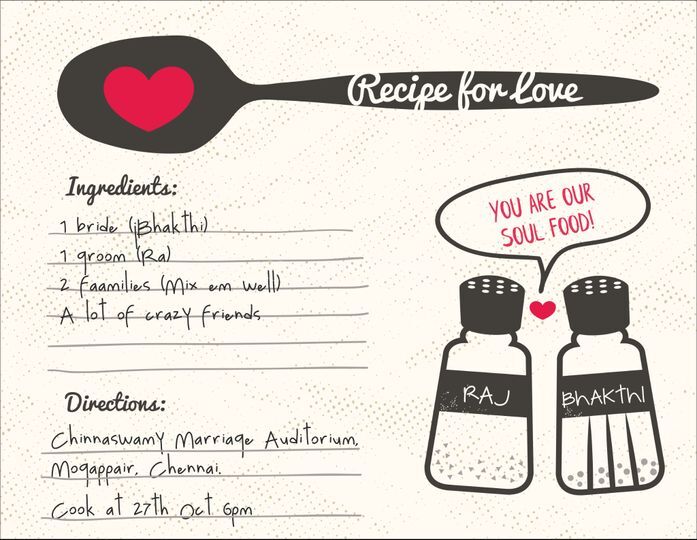 Recipe for Love
Ingredients:
1 bride (Bhakthi)
1 groom (Ra)
2 faamilies (Mix em well)
A lot of crazy friends
Directions:
Chinnaswamy Marriage Auditorium,
Mogappair, Chennai.
Cook at 27th Oct 6pm
YOU ARE OUR
SOUL FOOD!
RAJ
BhAKthI